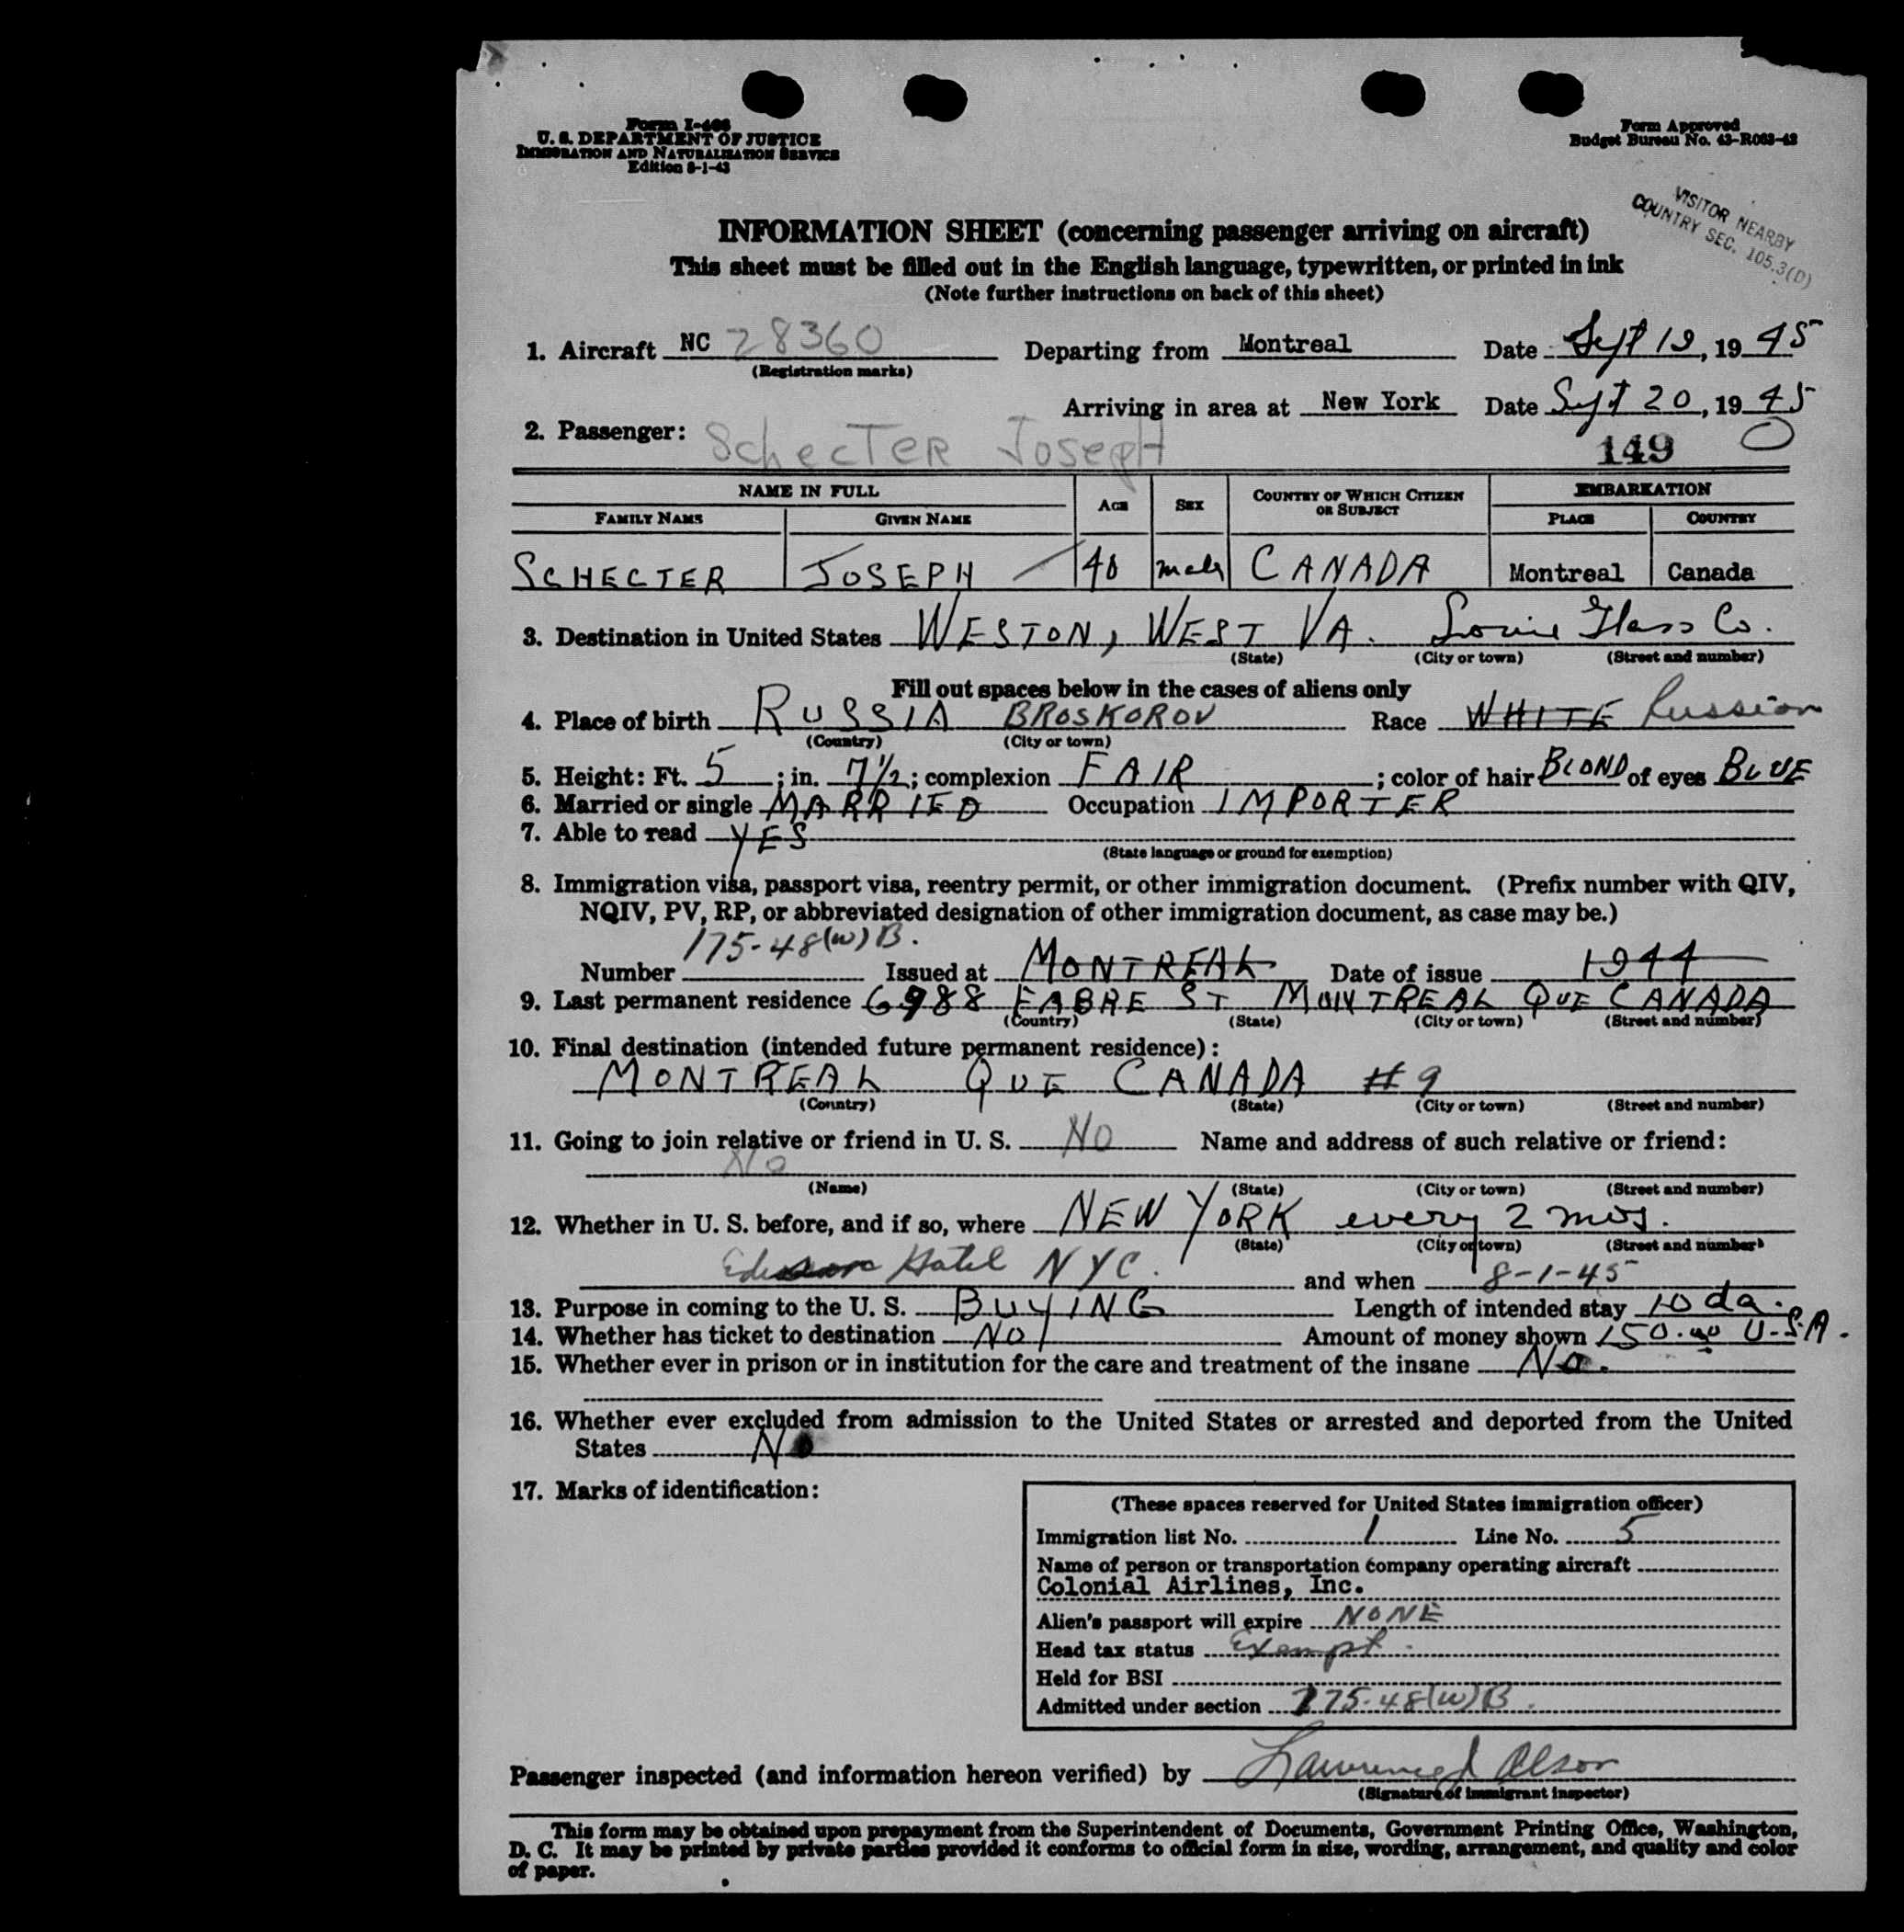 Form I-466
U. S. DEPARTMENT OF JUSTICE
IMMIGRATION AND NATURALIZATION SERVICE
Edition 8-1-43
Form Approved
Budget Bureau No. 43-R083-42
VISITOR NEARBY
COUNTRY SEC. 105.3(D)
INFORMATION SHEET (concerning passenger arriving on aircraft)
This sheet must be filled out in the English language, typewritten, or printed in ink
(Note further instructions on back of this sheet)
1. Aircraft NC 28360 Departing from Montreal Date Sept 19, 19 45
(Registration marks)
Arriving in area at New York Date Sept 20, 19 45
2. Passenger: Schecter Joseph
149
NAME IN FULL AGE SEX COUNTRY OF WHICH CITIZEN OR SUBJECT EMBARKATION
FAMILY NAME GIVEN NAME PLACE COUNTRY
SCHECTER JOSEPH 40 male CANADA Montreal Canada
3. Destination in United States WESTON, WEST VA. Louie Glass Co.
(State) (City or town) (Street and number)
Fill out spaces below in the cases of aliens only
4. Place of birth RUSSIA BROSKOROV Race WHITE Russian
(Country) (City or town)
5. Height: Ft. 5 ; in. 7 1/2 ; complexion FAIR ; color of hair BLOND of eyes BLUE
6. Married or single MARRIED Occupation IMPORTER
7. Able to read YES
(State language or ground for exemption)
8. Immigration visa, passport visa, reentry permit, or other immigration document. (Prefix number with QIV,
NQIV, PV, RP, or abbreviated designation of other immigration document, as case may be.)
175-48(w)B.
Number Issued at MONTREAL Date of issue 1944
9. Last permanent residence 6988 FABRE ST MONTREAL QUE CANADA
(Country) (State) (City or town) (Street and number)
10. Final destination (intended future permanent residence):
MONTREAL QUE CANADA #9
(Country) (State) (City or town) (Street and number)
11. Going to join relative or friend in U. S. No Name and address of such relative or friend:
No
(Name) (State) (City or town) (Street and number)
12. Whether in U. S. before, and if so, where NEW YORK every 2 mos.
(State) (City or town) (Street and number)
Hotel NYC. and when 8-1-45
13. Purpose in coming to the U. S. BUYING Length of intended stay 10 da.
14. Whether has ticket to destination NO Amount of money shown 150.00 U.S.A.
15. Whether ever in prison or in institution for the care and treatment of the insane No.
16. Whether ever excluded from admission to the United States or arrested and deported from the United
States No
17. Marks of identification:
(These spaces reserved for United States immigration officer)
Immigration list No. 1 Line No. 5
Name of person or transportation company operating aircraft
Colonial Airlines, Inc.
Alien's passport will expire NONE
Head tax status Exempt.
Held for BSI
Admitted under section 175-48(w)B.
Passenger inspected (and information hereon verified) by Lawrence J Olson
(Signature of immigrant inspector)
This form may be obtained upon prepayment from the Superintendent of Documents, Government Printing Office, Washington,
D. C. It may be printed by private parties provided it conforms to official form in size, wording, arrangement, and quality and color
of paper.